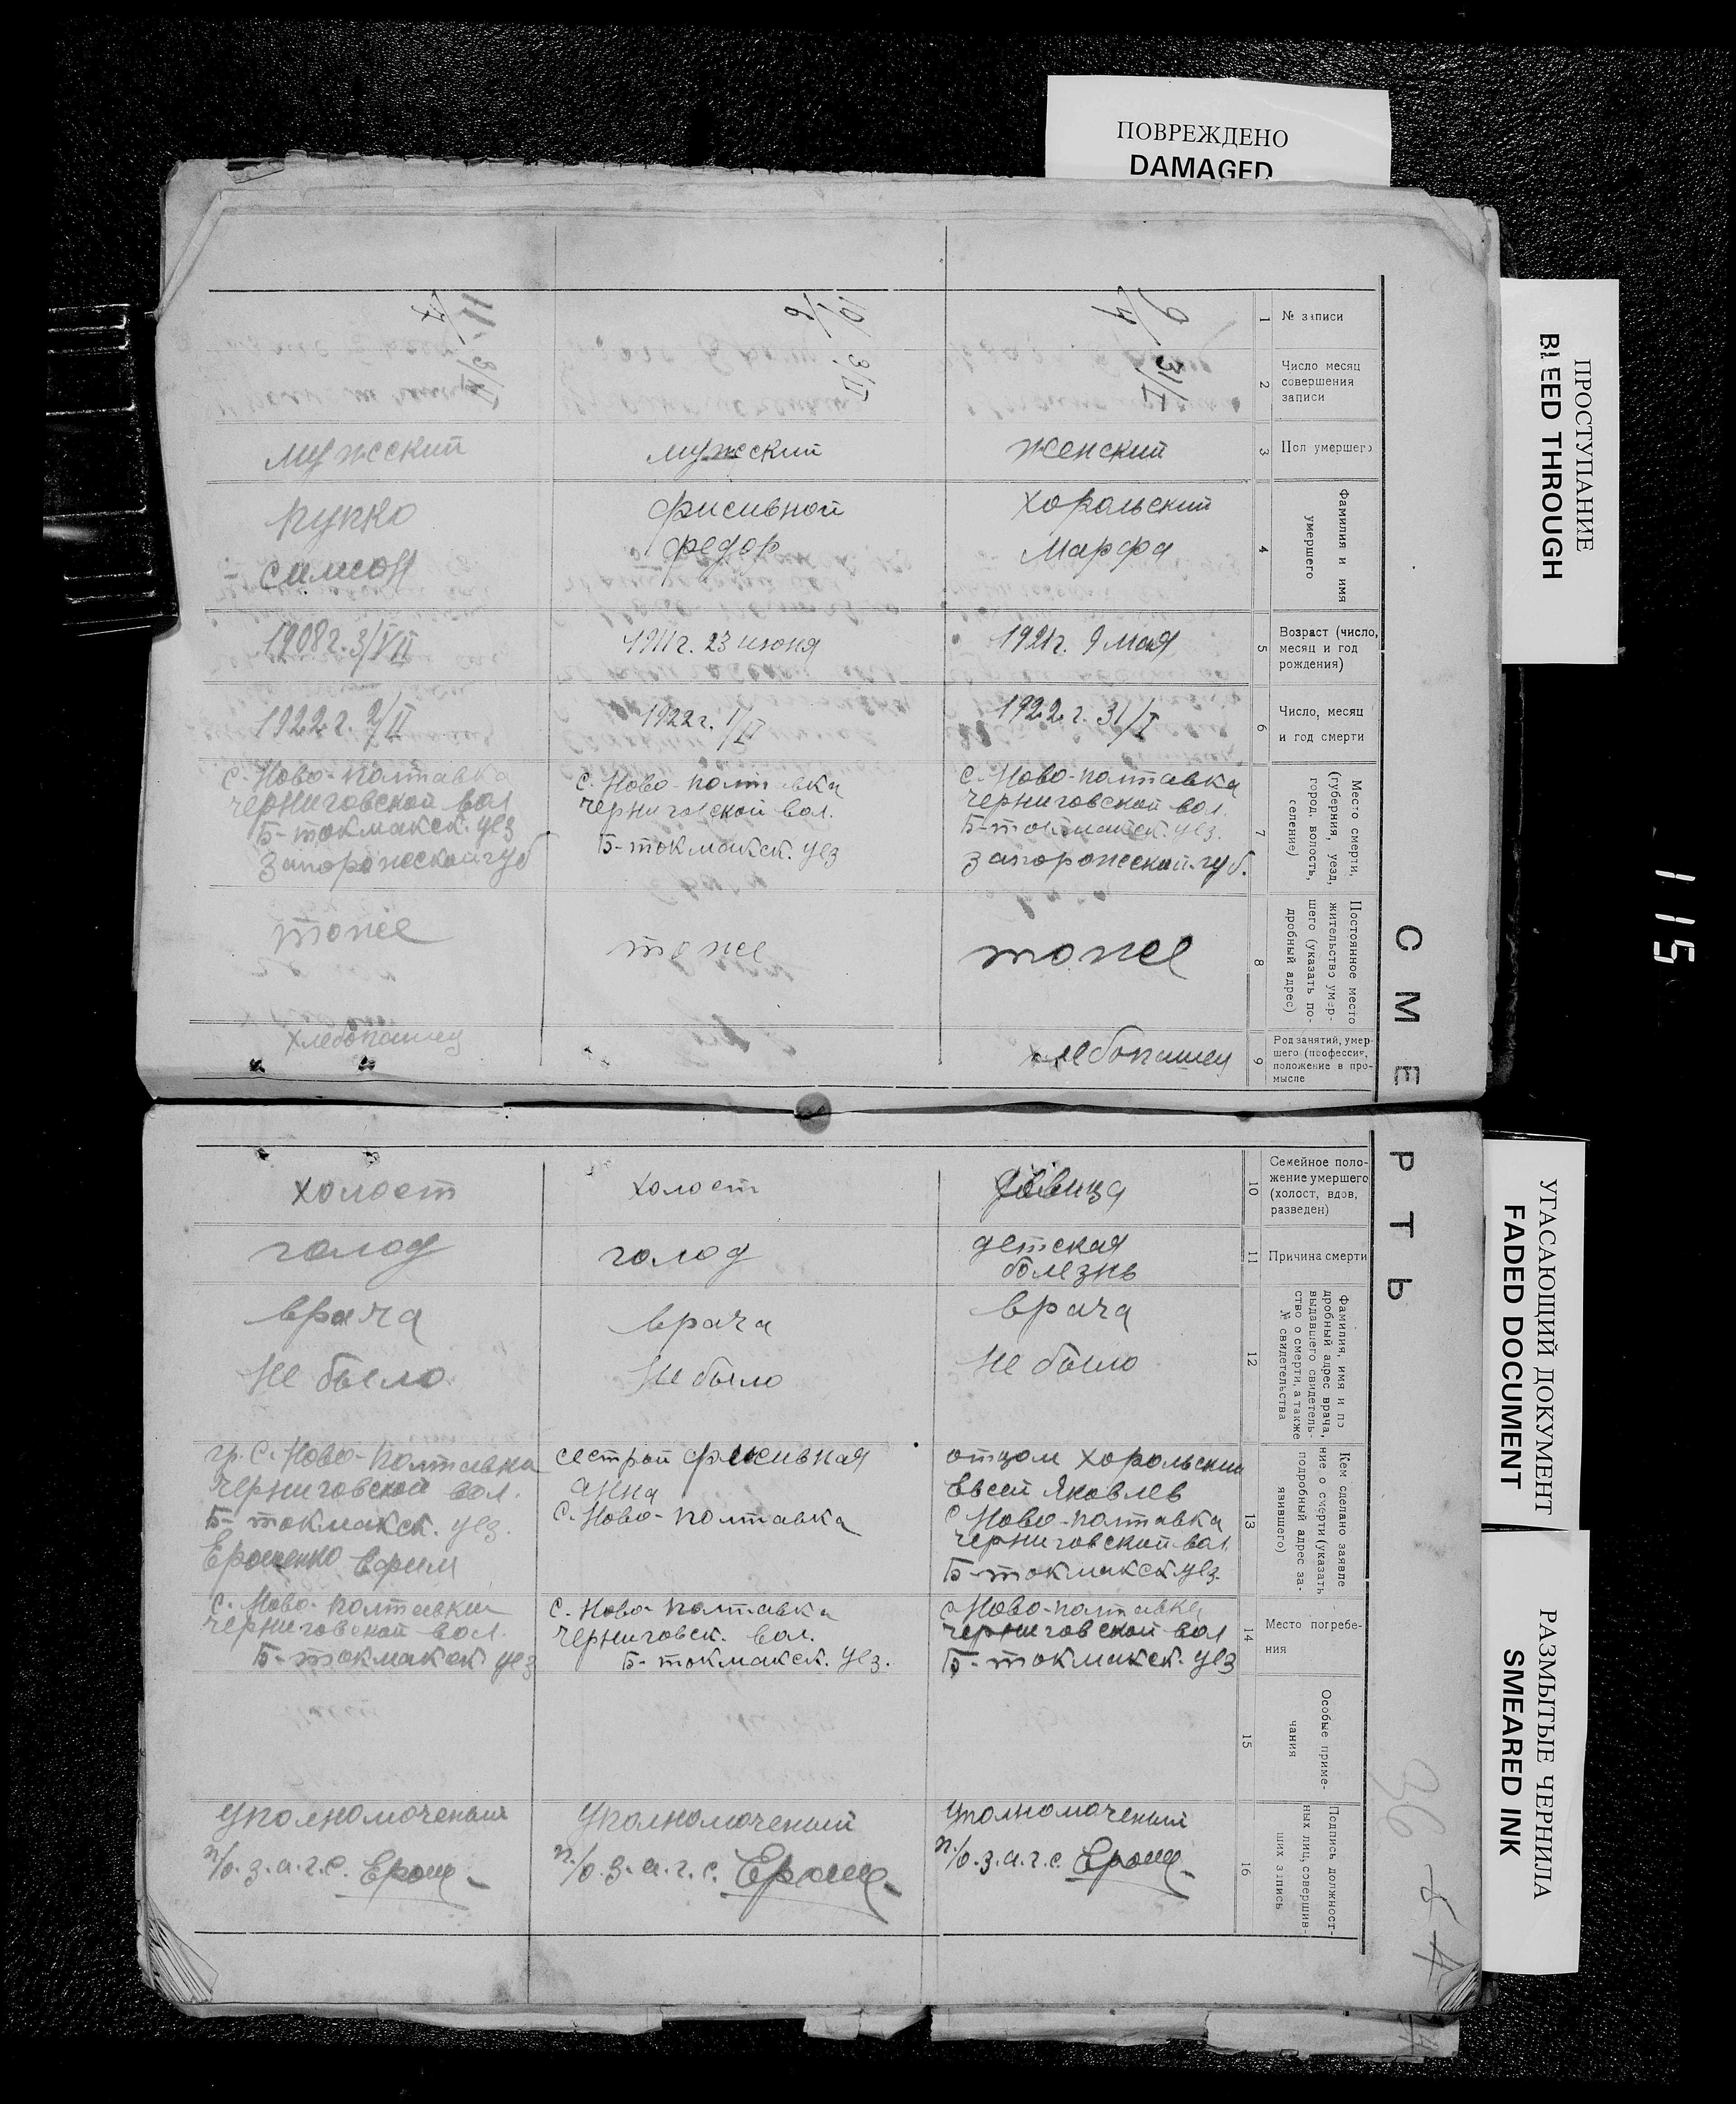 ПОВРЕЖДЕНО
DAMAGED
ПРОСТУПАНИЕ
BLEED THROUGH
УГАСАЮЩИЙ ДОКУМЕНТ
FADED DOCUMENT
РАЗМЫТЫЕ ЧЕРНИЛА
SMEARED INK
115
СМЕ
РТЬ
1
№ записи
2
Число месяц
совершения
записи
3
Пол умершего
4
Фамилия и имя
умершего
5
Возраст (число,
месяц и год
рождения)
6
Число, месяц
и год смерти
7
Место смерти,
(губерния, уезд,
город, волость,
селение)
8
Постоянное место
жительство умер-
шего (указать по-
дробный адрес)
9
Род занятий, умер-
шего (профессия,
положение в про-
мысле
10
Семейное поло-
жение умершего
(холост, вдов,
разведен)
11
Причина смерти
12
Фамилия, имя и по
дробный адрес врача,
выдавшего свидетель-
ство о смерти, а также
№ свидетельства
13
Кем сделано заявле
ние о смерти (указать
подробный адрес за-
явившего)
14
Место погребе-
ния
15
Особые приме-
чания
16
Подпись должност-
ных лиц, совершив-
ших запись
9/4
31/I
женский
Хорольский
Марфа
1921г. 9 мая
1922 г. 31/I
с. Ново-полтавка
черниговской вол.
Б-токмакск. уез.
запорожской губ.
тоже
хлебопашец
девица
детская
болезнь
врача
не было
отцом Хорольский
Евсей Яковлев
с Ново-полтавка
черниговской вол
Б-токмакск уез.
с Ново-полтавка
черниговской вол
Б-токмакск. уез
Уполномоченый
п/о.з.а.г.с. Ерощ
10/6
3/II
мужский
Фисивной
Федор
1911г. 23 июня
1922г. 1/II
с. Ново-полтавка
черниговской вол.
Б-токмакск. уез
тоже
холост
голод
врача
не было
сестрой Фисивная
Анна
с. Ново-полтавка
с. Ново-полтавка
черниговск. вол.
Б-токмакск. уез.
Уполномоченый
п/о.з.а.г.с. Ерощ
11/7
3/II
мужеский
Рупко
Симеон
1908г. 3/VII
1922 г. 2/II
с. Ново-полтавка
черниговской вол
Б-токмакск. уез
запорожской губ
тоже
хлебопашец
холост
голод
врача
не было
гр. с. Ново-полтавка
черниговской вол.
Б-токмакск. уез.
Ерощенко Ефим
с. Ново-полтавки
черниговской вол.
Б-токмакск уез
Уполномоченый
п/о.з.а.г.с. Ерощ
36